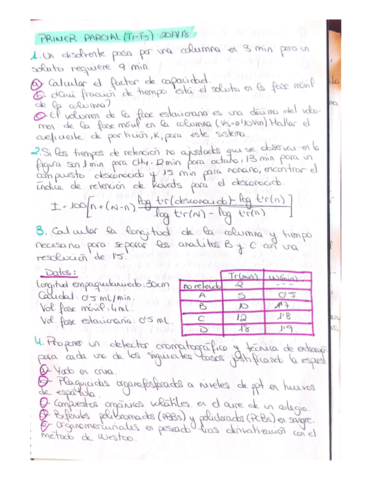 PRIMER PARCIAL (T1-T5) 2017/18
1. Un disolvente pasa por una columna en 3 min pero un
soluto requiere 9 min.
a Calcular el factor de capacidad.
b ¿Qué fracción de tiempo está el soluto en la fase móvil
de la columna?
c El volumen de la fase estacionaria es una décima del volu-
men de la fase móvil en la columna (Vs=0'10Vm) Hallar el
coeficiente de partición, K, para este sistema.
2. Si los tiempos de retención no ajustados que se observa en la
figura son 1 min para CH4, 12 min para octano, 13 min para un
compuesto desconocido y 15 min para nonano, encontrar el
índice de retención de Kovats para el desconocido.
I = 100 [n + (N-n) log t'r(desconocido) - log t'r(n) / log t'r(N) - log t'r(n)]
3. Calcular la longitud de la columna y tiempo
necesario para separar los analitos B y C con una
resolución de 1'5.
Datos:
longitud empaquetamiento: 30cm
Caudal: 0'5 mL/min.
Vol fase móvil: 4mL
Vol fase estacionaria: 0'5 mL.
Tr(min) W(min)
no retenido 2 ---
A 5 0'5
B 10
C 12 1'8
D 18 1'9
4. Propones un detector cromatográfico y técnica de
para cada uno de los siguientes casos justificando la
a Yodo en orina.
b Plaguicidas organofosforados a niveles de ppt en huevos
de
c Compuestos orgánicos volátiles en el aire de un colegio
d Bifenilos polibromados (PBBs) y policlorados (PCBs) en sangre.
e Organomercuriales en pescado tras derivatización con el
método de Westoo.